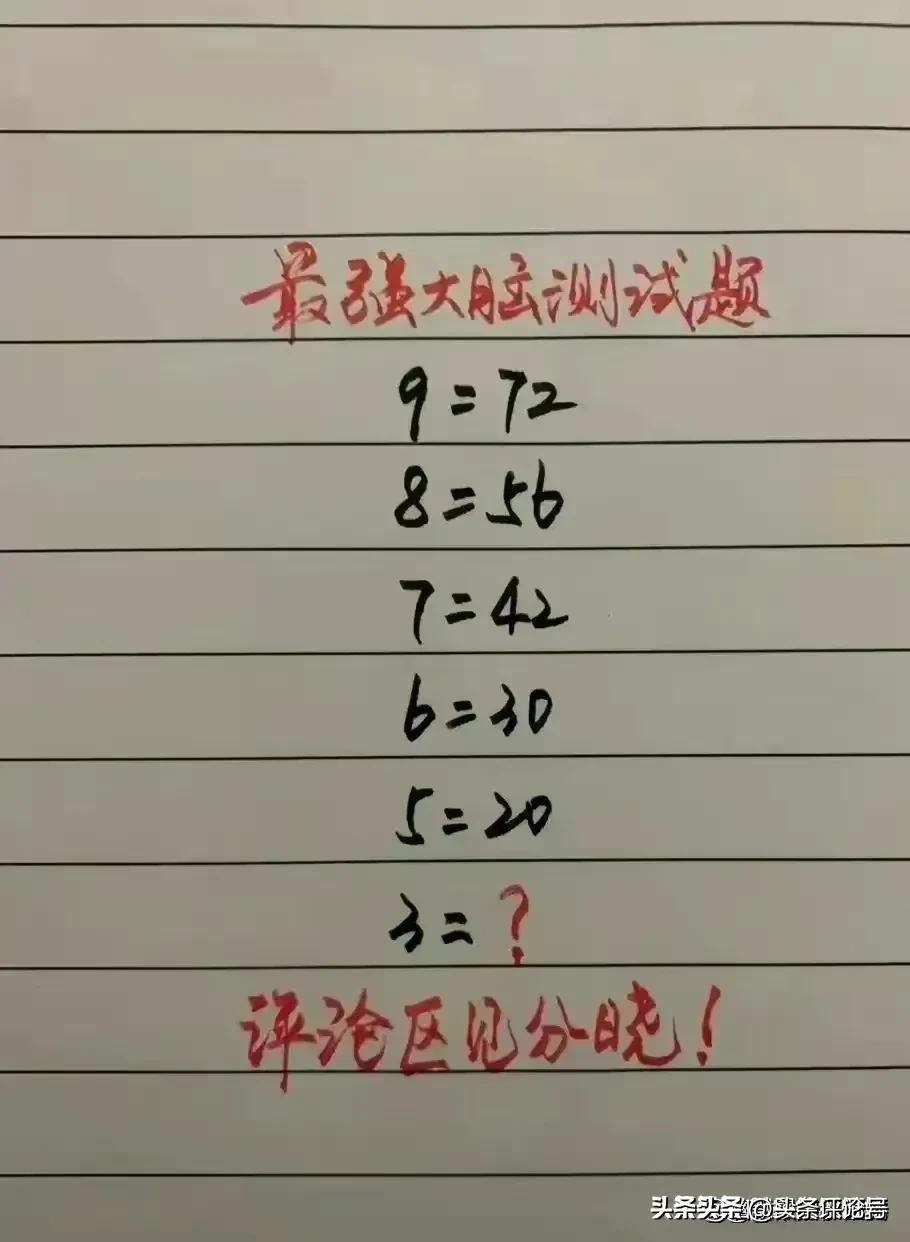 最强大脑测试题
9=72
8=56
7=42
6=30
5=20
3=?
评论区见分晓!
头条 @头条评论号